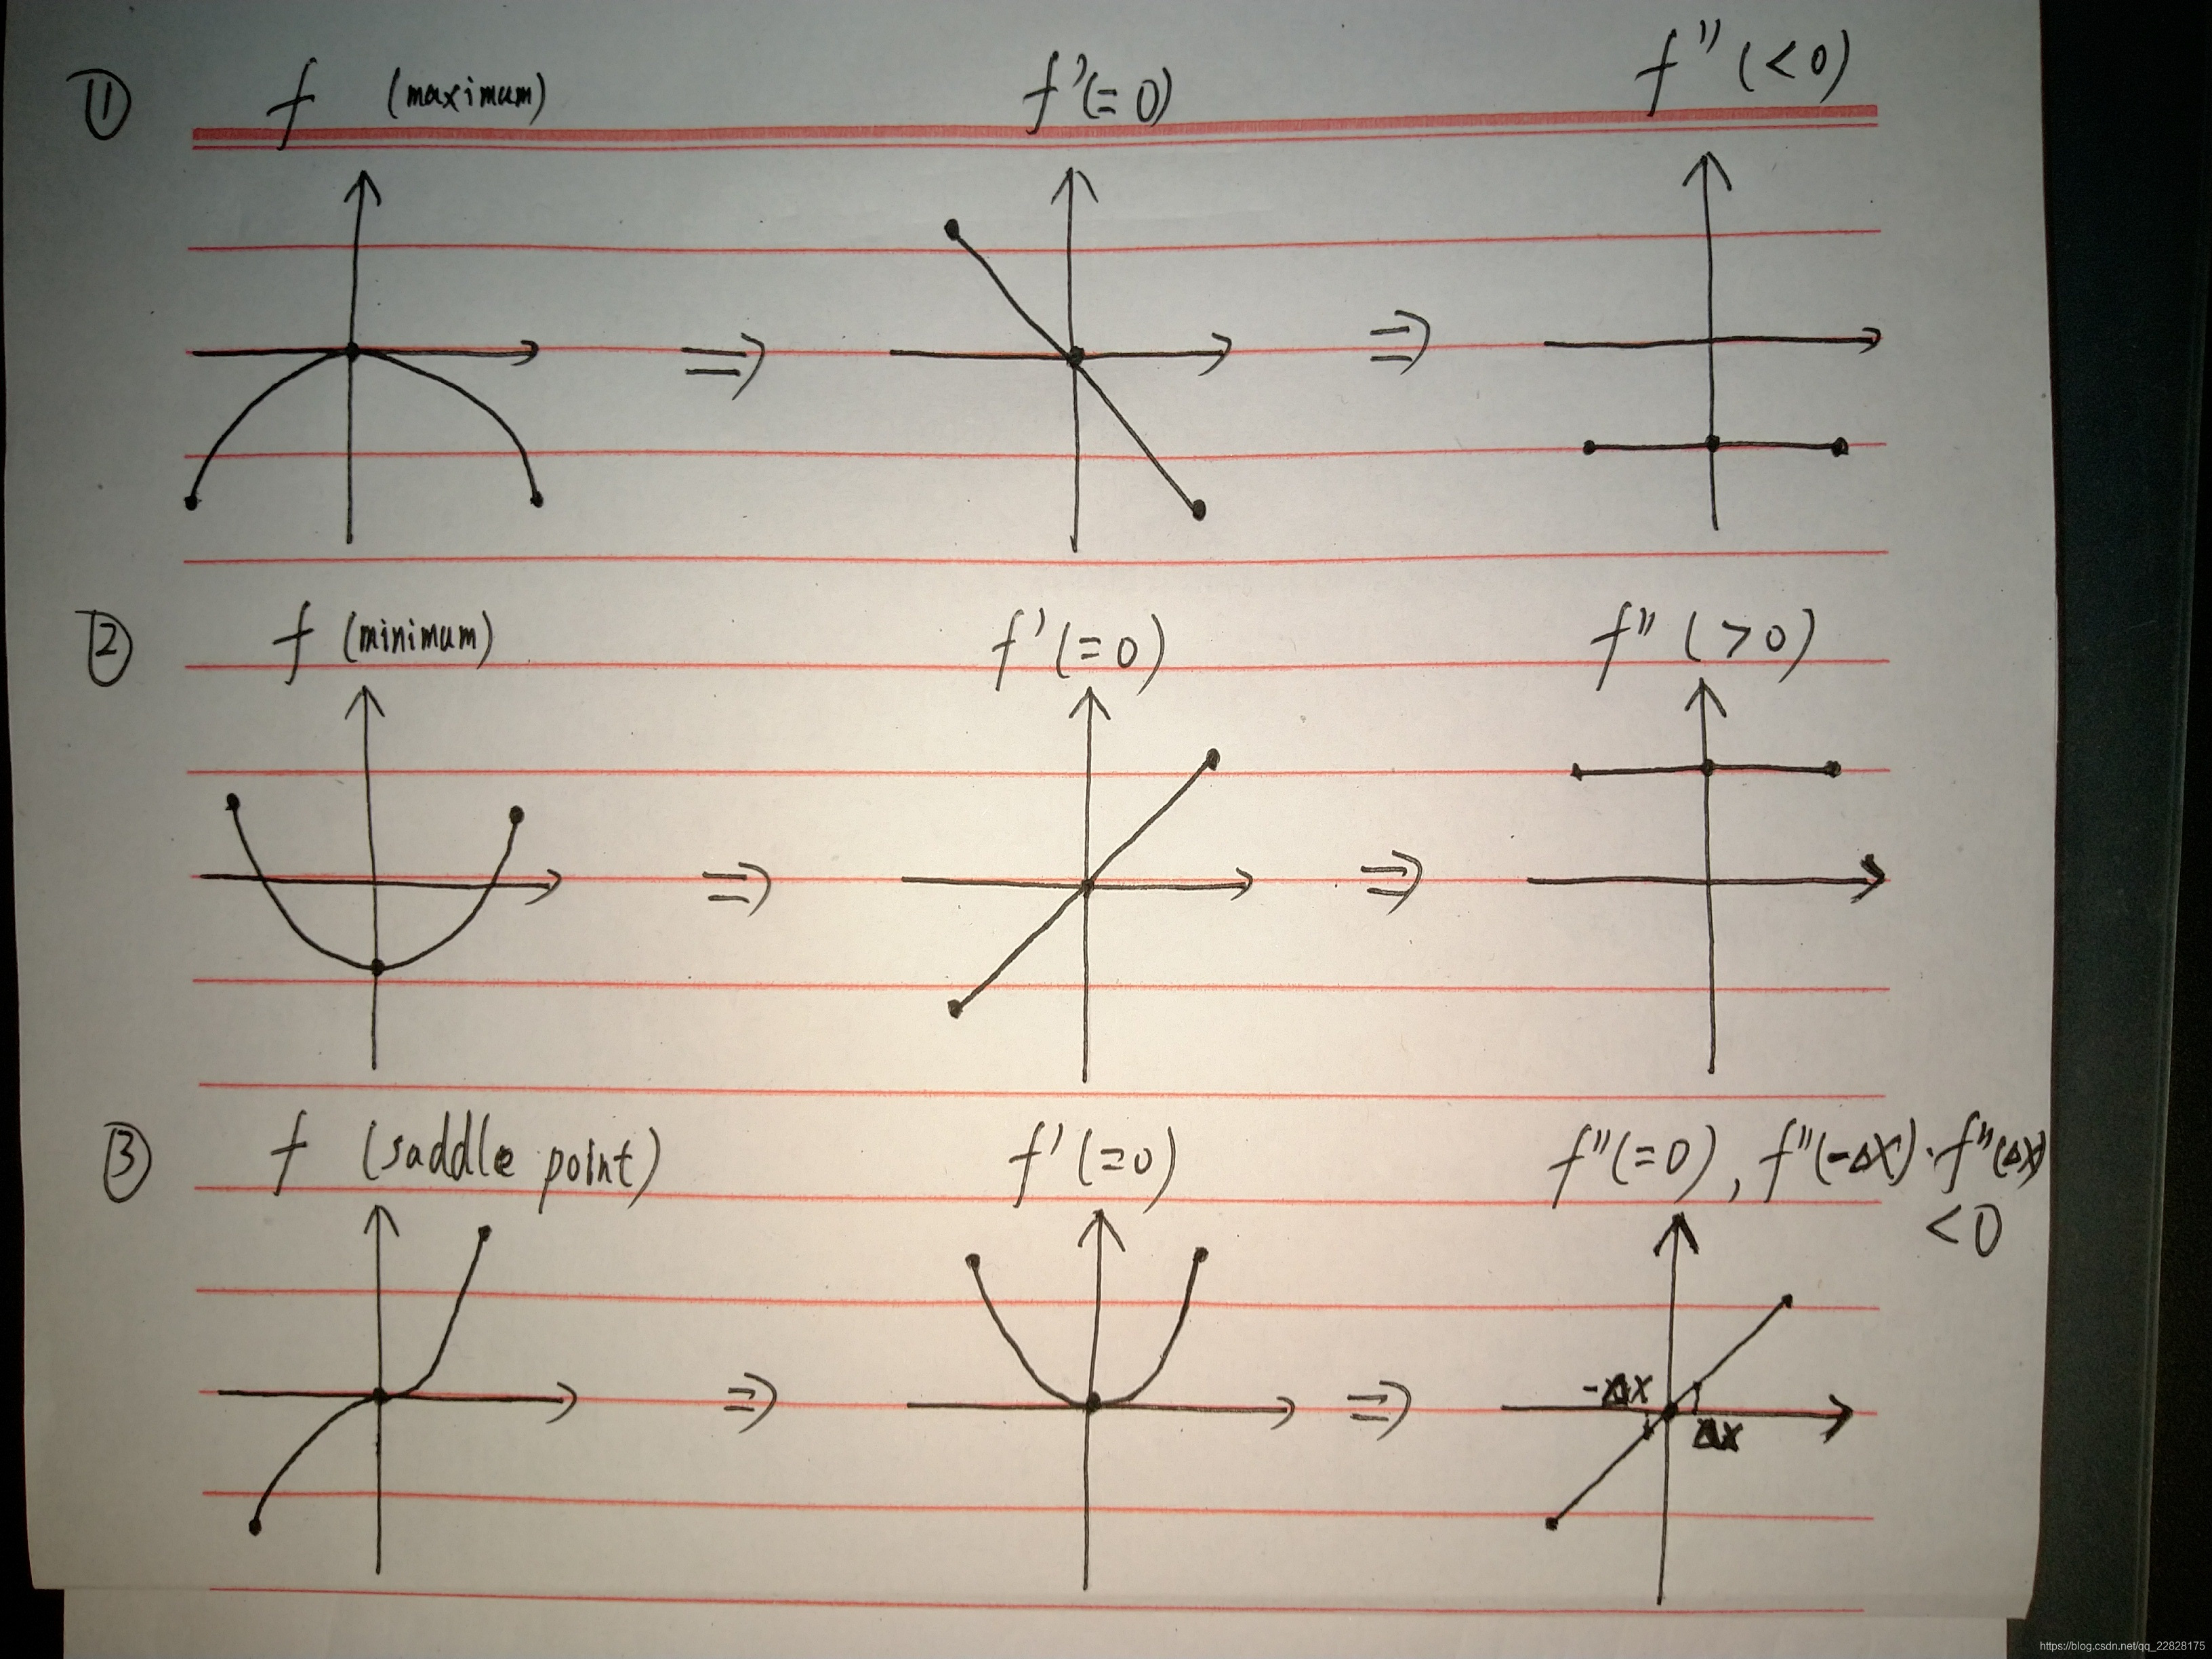 ① f (maximum) f'(=0) f''(<0)
⇒ ⇒
② f (minimum) f'(=0) f''(>0)
⇒ ⇒
③ f (saddle point) f'(=0) f''(=0), f''(-Δx)·f''(Δx)
<0
⇒ ⇒
-Δx
Δx
https://blog.csdn.net/qq_22828175